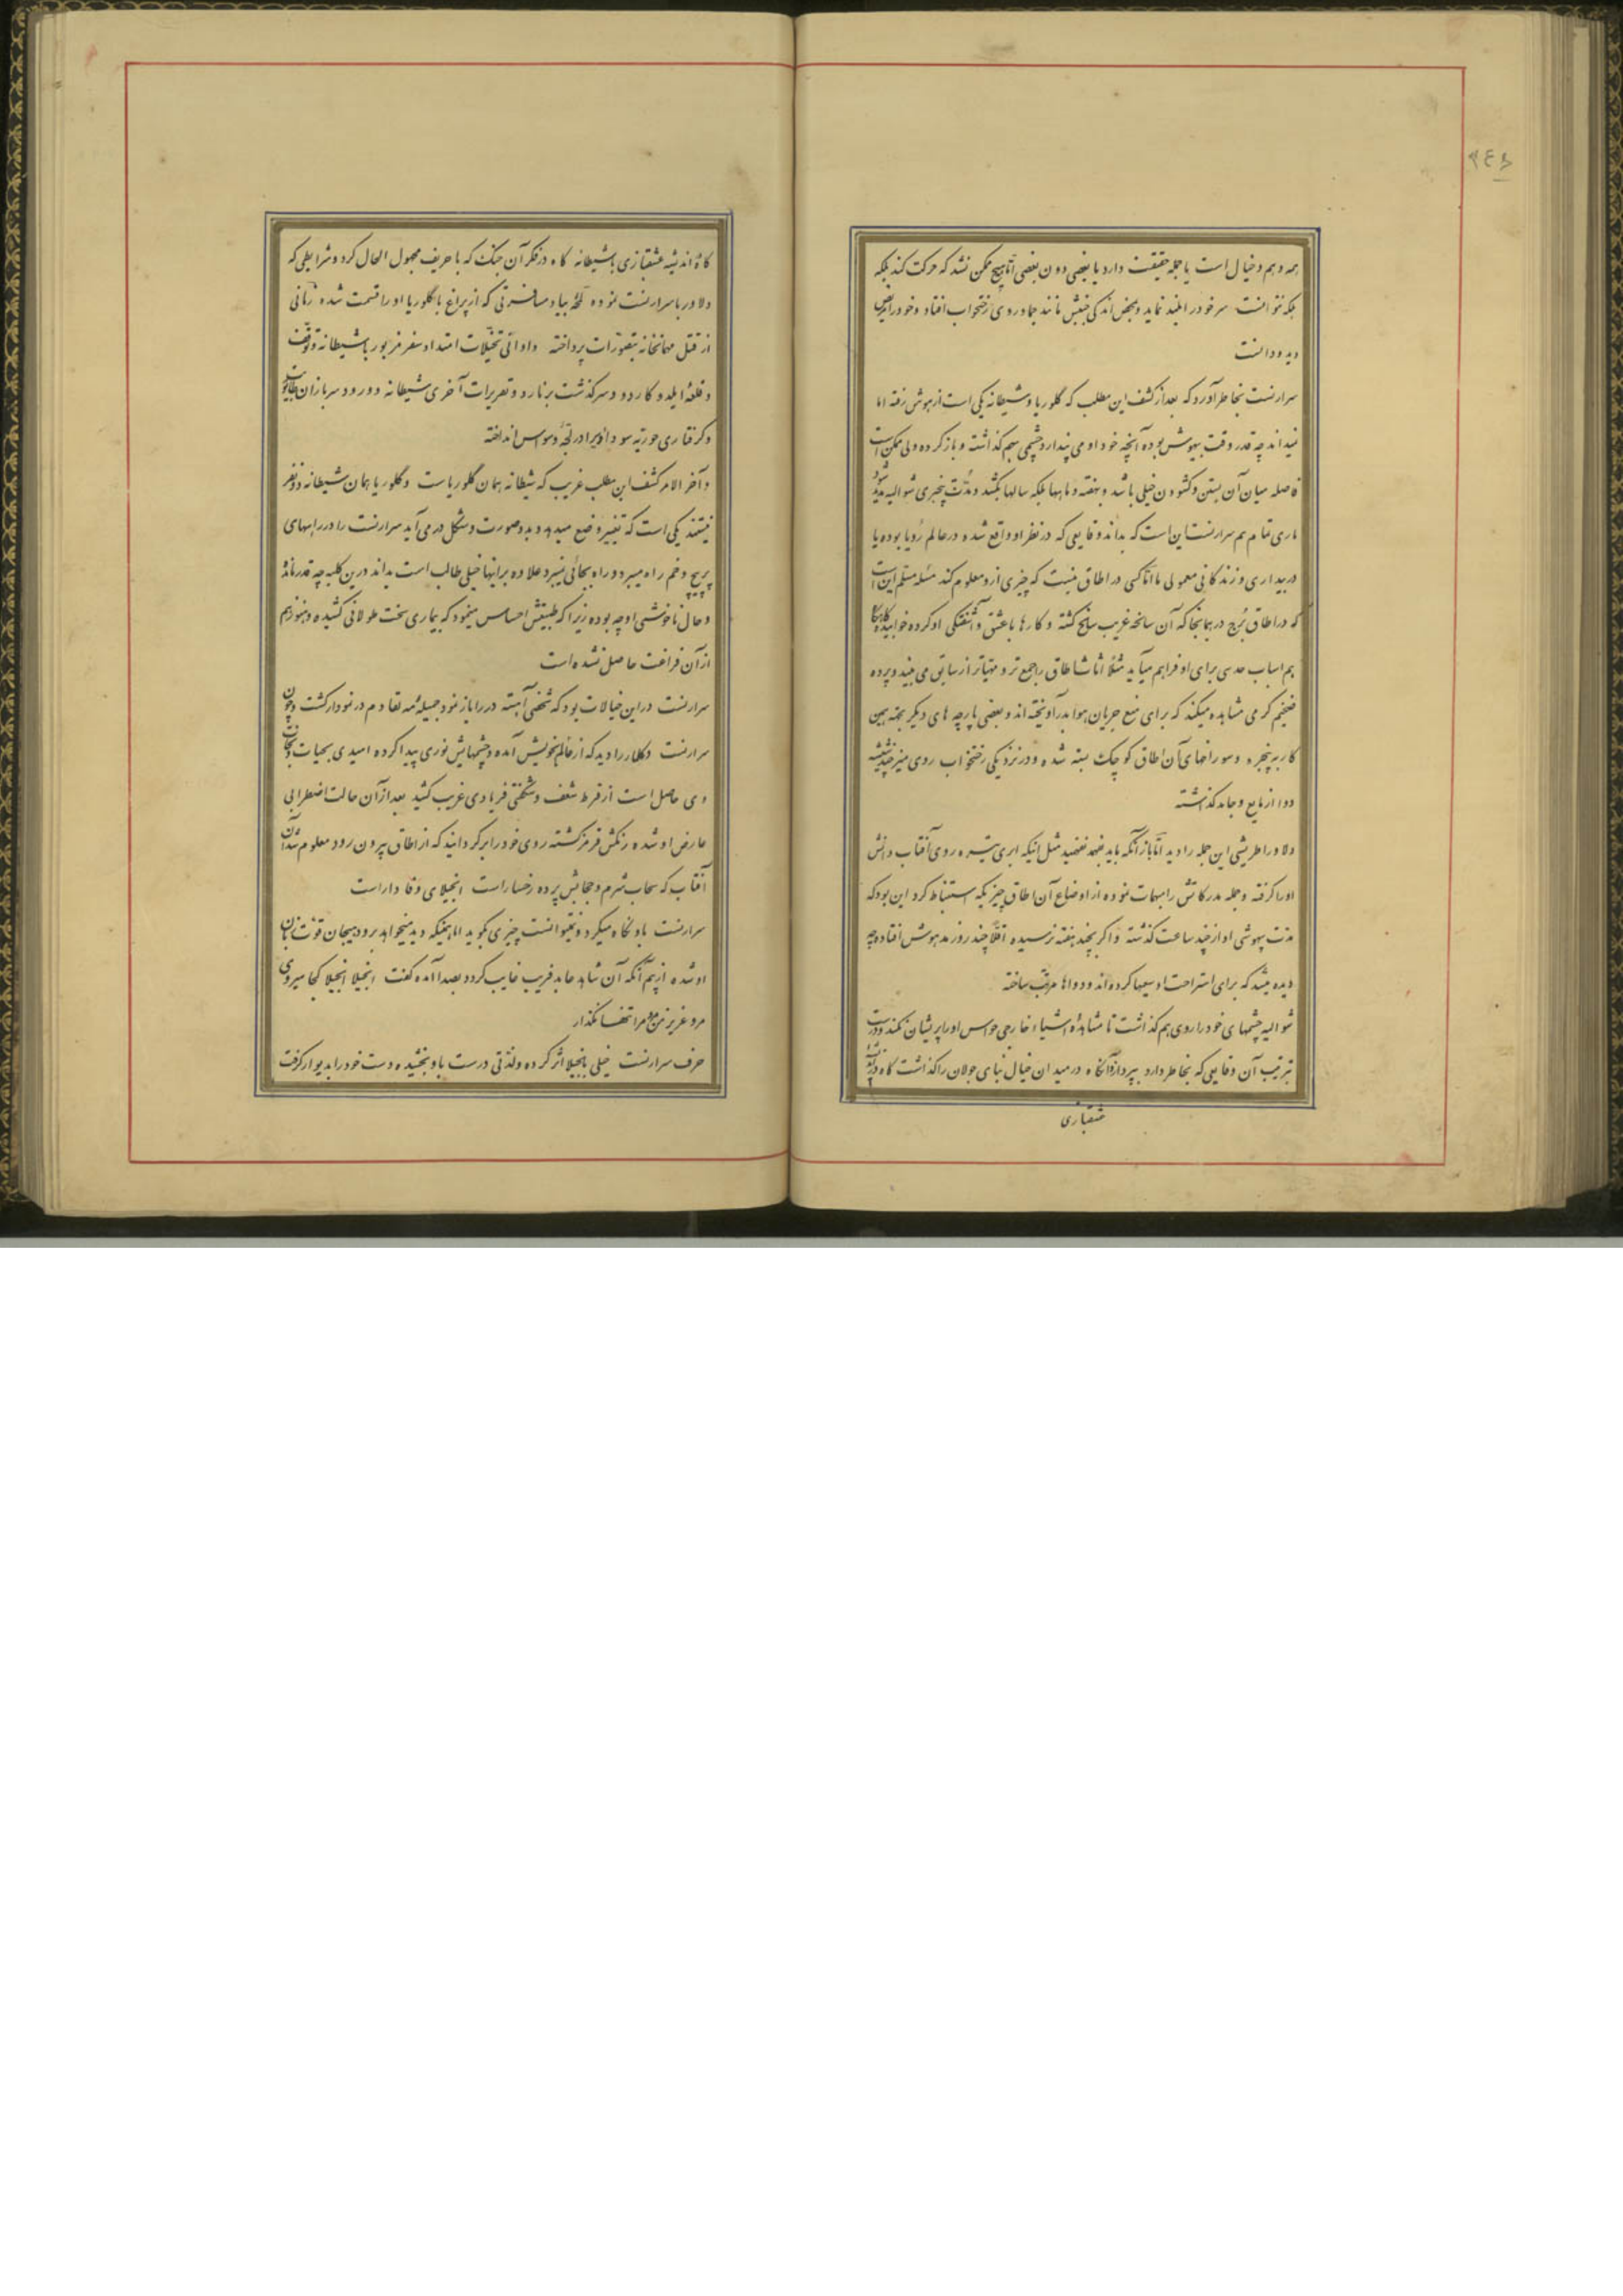 ۲٤۶
همه وهم و خیال است یا جمله حقیقت دارد یا بعضی دون بعضی اما هیچ ممکن نشد که حرکت کند بلکه
بلکه نتوانست سر خود را بلند نماید و بمحض اندکی جنبش مانند جماد روی رختخواب افتاد و خود را مریض
دید و دانست
سرارنست بخاطر آورد که بعد از کشف این مطلب که گلوریا و شیطانه یکی است از هوش رفته اما
نمیداند چه قدر وقت بیهوش بوده آنچه خود او می پندارد چشمی بهم گذاشته و باز کرده ولی ممکن است
فاصله میان آن بستن و گشودن خیلی باشد و بهفته و ماهها بلکه سالها بکشد و مدت بیخبری شوالیه مدید شود
باری تمام هم سرارنست این است که بداند وقایعی که در نظر او واقع شده در عالم رؤیا بوده یا
در بیداری و زندگانی معمولی ما اما کسی در اطاق نیست که چیزی از و معلوم کند مسئله مسلم این است
که در اطاق برج در همانجا که آن سانحه غریب سانح گشته و کارها با عشق و آشفتگی او کرده خوابیده گاهگاه
هم اسباب حدسی برای او فراهم میآید مثلا اثاث اطاق را جمع تر و مهیاتر از سابق می بیند و پرده
ضخیم گرمی مشاهده میکند که برای منع جریان هوا بدر آویخته اند و بعضی پارچه های دیگر بجهة همین
کار به پنجره و سوراخهای آن اطاق کوچک بسته شده و در نزدیکی رختخواب روی میز چند شیشه
دوا از مایع و جامد گذاشته
دلاور اطریشی این جمله را دید اما باز آنکه باید بفهمد نفهمید مثل اینکه ابری تیره روی آفتاب دانش
او را گرفته و جمله مدرکاتش را مبهات نموده از اوضاع آن اطاق چیزیکه استنباط کرد این بود که
مدت بیهوشی او از چند ساعت گذشته و اگر بچند هفته نرسیده اقلا چند روز مدهوش افتاده چه
دیده میشد که برای استراحت او سعیها کرده اند و دواها مرتب ساخته
شوالیه چشمهای خود را روی هم گذاشت تا مشاهده اشیاء خارجی حواس او را پریشان نکند و درست
بترتیب آن وقایعی که بخاطر دارد بپردازد آنگاه در میدان خیال بنای جولان را گذاشت گاه در
عشقبازی
گاه اندیشه عشقبازی باشیطانه گاه در فکر آن جنگ که با حریف مجهول الحال کرد و شرایطی که
دلاور با سرارنست نموده لمحهٔ بیاد مسافرتی که از پراغ با گلوریا او را قسمت شده زمانی
از قتل مهمانخانه بتصورات پرداخته و اوانی تخیلات امتداد سفر مزبور باشیطانه و توقف
و قلعه ایلدو کاردو و سرگذشت برنارد و تعزیرات آخری شیطانه و ورود سربازان
و گرفتاری حوریه سودا او را در لجهٔ وسواس انداخته
و آخر الامر کشف این مطلب غریب که شیطانه همان گلوریاست و گلوریا همان شیطانه دو نفر
نیستند یکی است که تغییر وضع میدهد و بدو صورت و شکل در می آید سرارنست را در راههای
پرپیچ و خم راه میبرد و راه بجائی نمیبرد علاوه بر اینها خیلی طالب است بداند درین کلبه چه قدر مانده
و حال ناخوشی او چه بوده زیرا که طبیعتش احساس مینمود که بیماری سخت طولانی کشیده و هنوز هم
از آن فراغت حاصل نشده است
سرارنست در این خیالات بود که شخصی آهسته در را باز نمود جمیلهٔ مه لقا دم در نمودار گشت و چون
سرارنست دلاور را دید که از عالم بخویش آمده و چشمهایش نوری پیدا کرده امیدی بحیات و نجات
وی حاصل است از فرط شعف و شگفتی فریادی غریب کشید بعد از آن حالت اضطرابی
عارض او شده رنگش قرمز گشته روی خود را برگردانید که از اطاق بیرون رود معلوم شد آن
آفتاب که سحاب شرم و حجابش پرده رخسار است انجیلای وفادار است
سرارنست باو نگاه میکرد و نمیتوانست چیزی بگوید اما همینکه دید میخواهد برود هیجان قوت زبان
او شده از بیم آنکه آن شاهد عابد فریب غایب گردد بصدا آمده گفت انجیلا انجیلا کجا میروی
مرو عزیز من مرو مرا تنها نگذار
حرف سرارنست خیلی بانجیلا اثر کرده و لذتی درست باو بخشیده دست خود را بدیوار گرفت